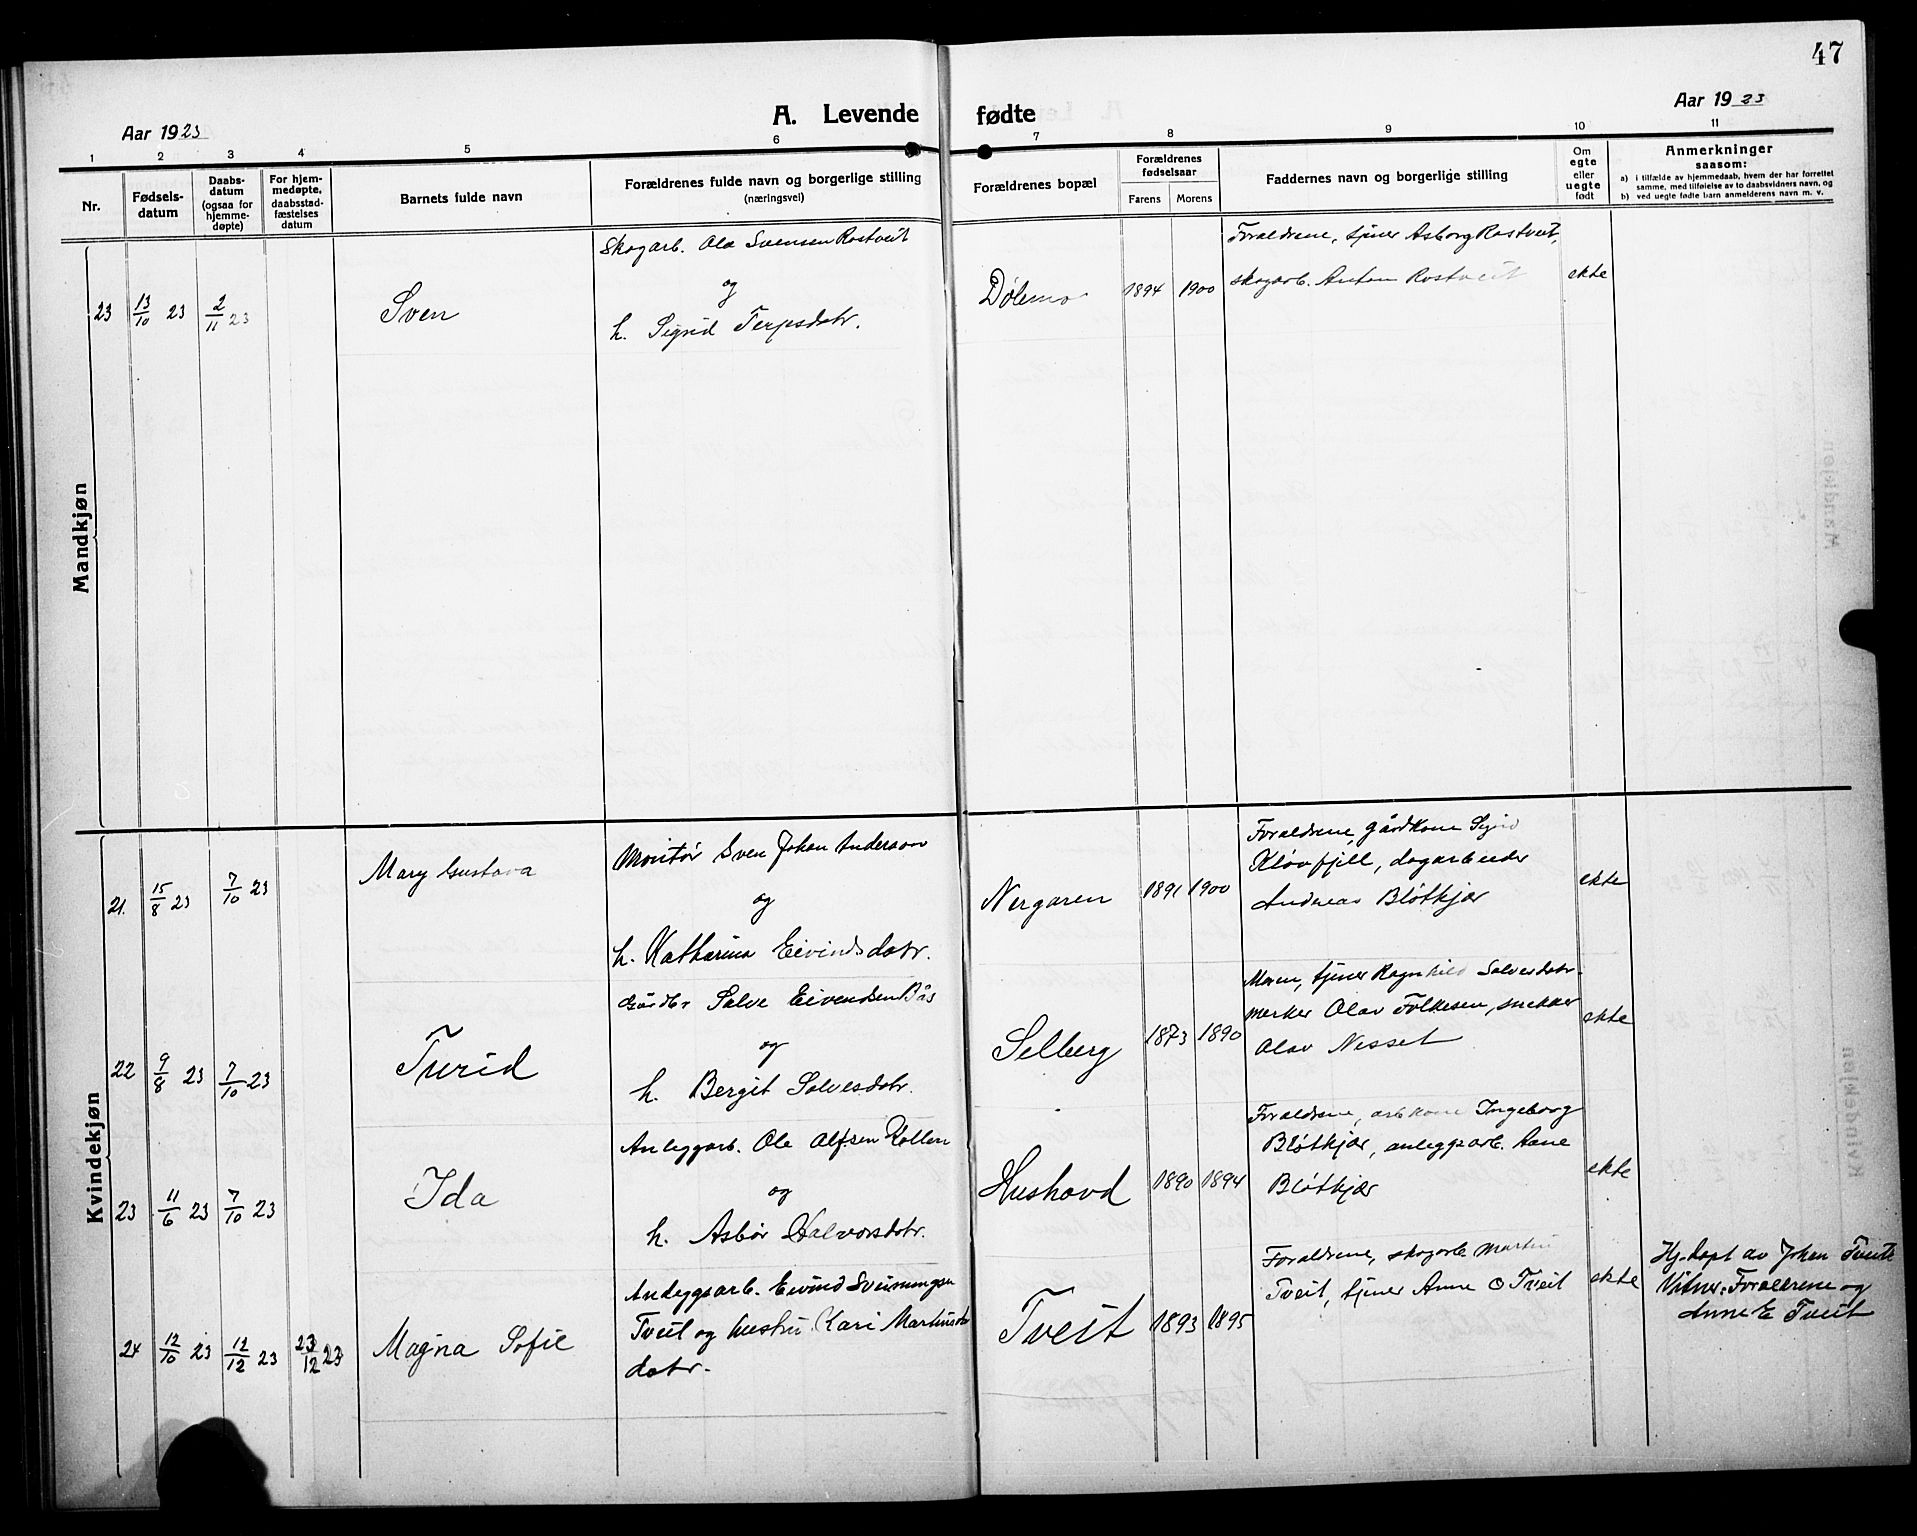 47
Aar 1923
A. Levende fødte
Aar 1923
1 2 3 4 5 6 7 8 9 10 11
Nr.
Fødsels-
datum
Daabs-
datum
(ogsaa for
hjemme-
døpte)
For hjem-
medøpte,
daabsstad-
fæstelses
datum
Barnets fulde navn
Forældrenes fulde navn og borgerlige stilling
(næringsvei)
Forældrenes bopæl
Forældrenes
fødselsaar
Farens Morens
Faddernes navn og borgerlige stilling
Om
egte
eller
uegte
født
Anmerkninger
saasom:
a) i tilfælde av hjemmedaab, hvem der har forrettet
samme, med tilføielse av to daabsvidners navn, og
b) ved uegte fødte barn anmelderens navn m. v.
Mandkjøn
23 13/10 23 2/11 23
Sven
Skogarb. Ola Svensen Rostveit
og
h. Sigrid Terjesdotr.
Dølemo 1894 1900
Foraldrene, tjener Asborg Rostveit,
skogarb. Anton Rostveit
ekte
Kvindekjøn
21. 15/8 23 7/10 23
Mary Gustava
Montør Sven Johan Anderson
og
h. Katharina Eivindsdotr.
Nergaren 1891 1900
Foraldrene, gårdkone Sigrid
Kløvfjell, dagarbeider
Andreas Bløtkjær
ekte
22 9/8 23 7/10 23
Turid
Gårdbr Salve Eivendsen Bås
og
h. Bergit Solvesdotr.
Selberg 1873 1890
Moren, tjener Ragnhild Salvesdotr.
merker Olav Folkesen, snekker
Olav Nesset
ekte
23 11/6 23 7/10 23
Ida
Anleggarb. Ole Olfsen Kollen
og
h. Asbør Halvorsdotr.
Hushovd 1890 1894
Foraldrene, arb.kone Ingeborg
Bløtkjær, anleggsarb. Aane
Bløtkjær
ekte
24 12/10 23 12/12 23 23/12 23
Magna Sofie
Anleggsarb. Eivind Sveinungsen
Tveit og hustru Kari Martins
dotr.
Tveit 1893 1895
Foraldrene, skogarb Martin
Tveit, tjener Anne O Tveit
ekte
Hj.døpt av Johan Tveit
Vitner: Foraldrene og
Anne E Tveit